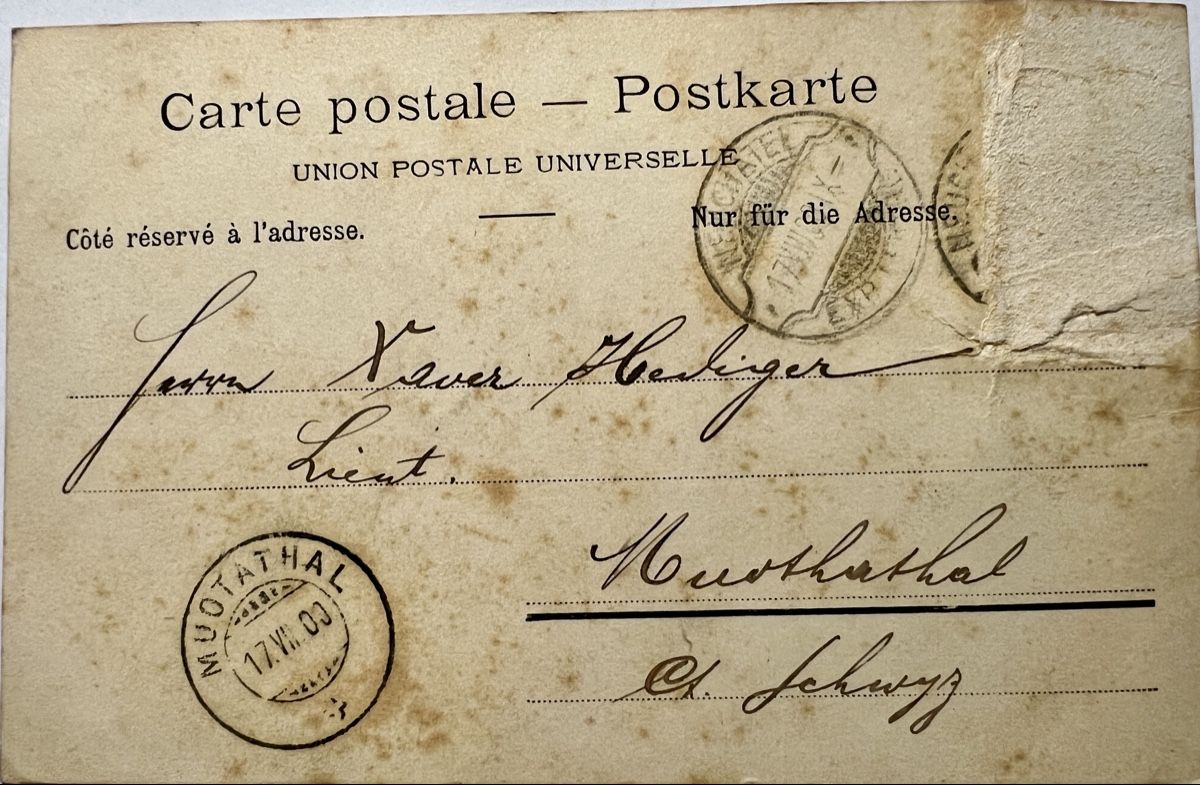 Carte postale — Postkarte
UNION POSTALE UNIVERSELLE
Côté réservé à l'adresse.
Nur für die Adresse.
NEUCHATEL
EXP. LETT.
Herrn Xaver Hediger
Lieut.
Muothathal
Ct. Schwyz
MUOTATHAL
17.VII.00